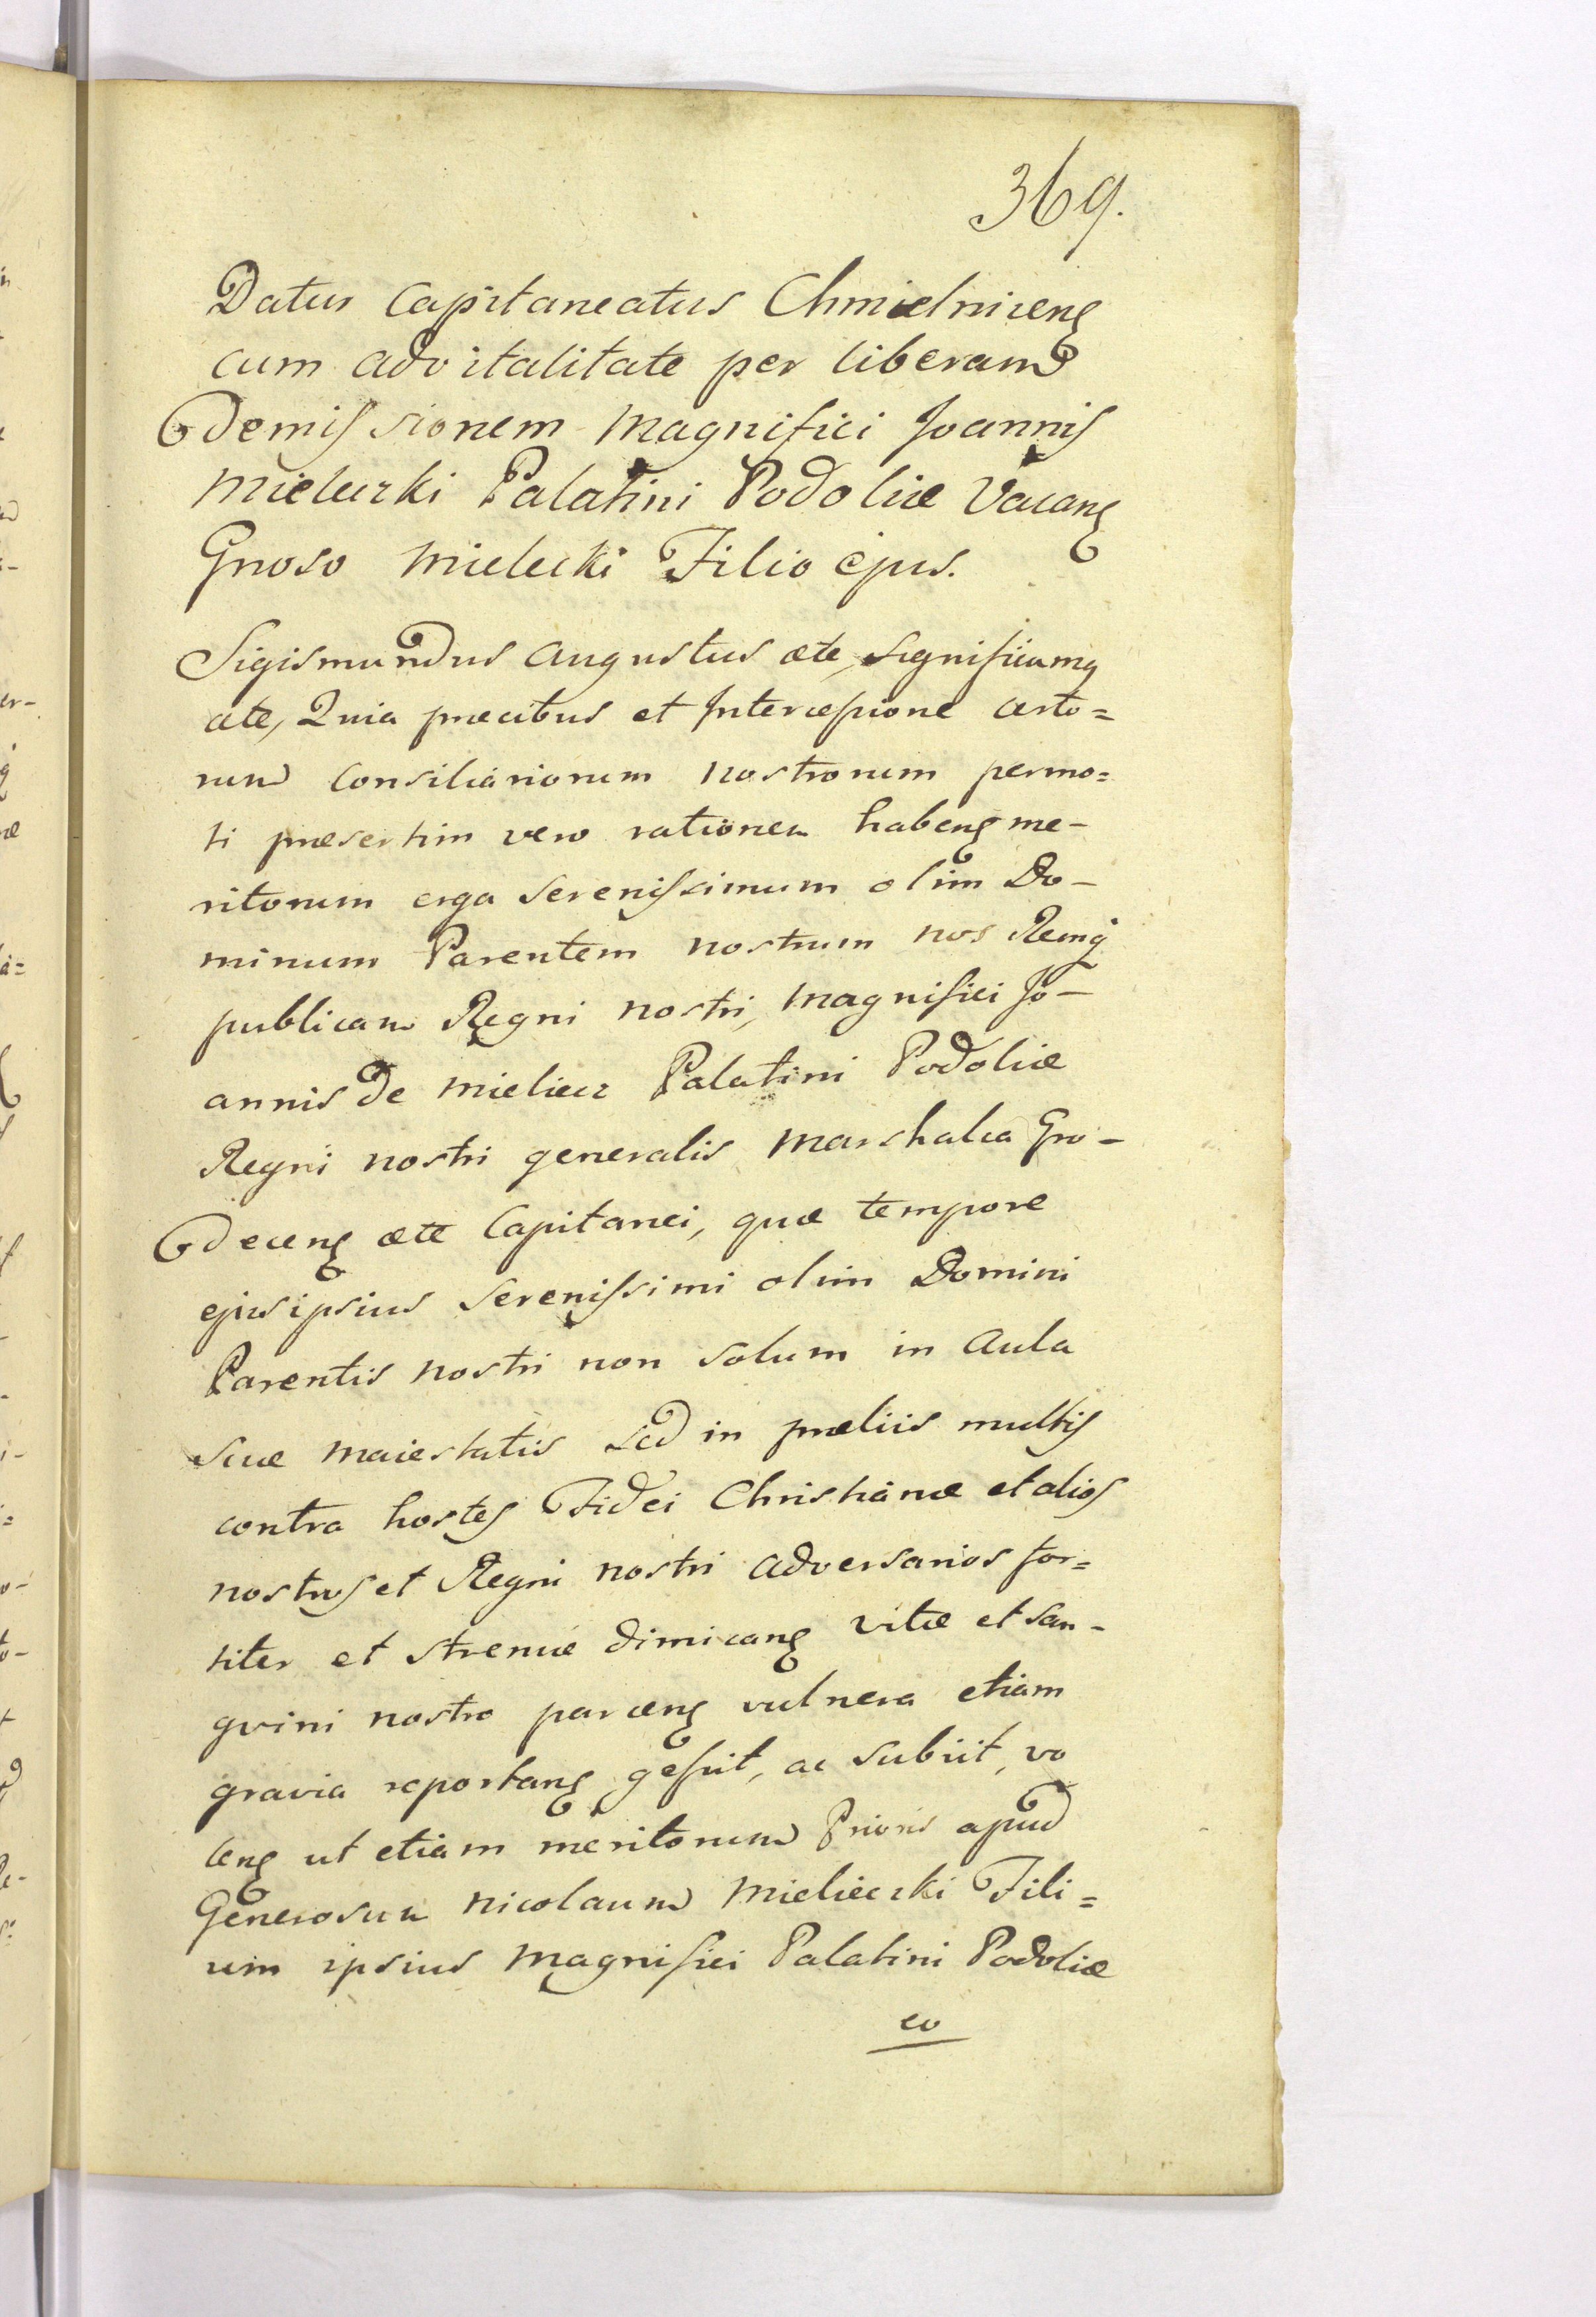 369.
Datur Capitaneatus Chmielnicens
cum advitalitate per liberam
Demissionem Magnifici Joannis
Mielecki Palatini Podoliæ Vacans
Gnoso Mielecki Filio ejus.
Sigismundus Augustus ætc, Significamus
ætc, Quia precibus et Intercessione certo=
rum Consiliariorum nostrorum permo=
ti præsertim vero rationem habens me-
ritorum erga Serenissimum olim Do-
minum Parentem nostrum nos Remq
publicam Regni nostri, Magnifici Jo-
annis de Mieliecz Palatini Podoliæ
Regni nostri generalis Marshalca Gro-
decens ætc Capitanei, quæ tempore
ejus ipsius Serenissimi olim Domini
Parentis nostri non solum in Aula
Suæ Maiestatis Sed in præliis multis
contra hostes Fidei Christianæ et alios
nostros et Regni nostri adversarios for=
titer et strenue dimicans vitæ et san-
gvini nostro parcens vulnera etiam
gravia reportans gessit, ac subiit, vo
lens ut etiam meritorum Prioris apud
Generosum Nicolaum Mieliecki Fili=
um ipsius Magnifici Palatini Podoliæ
eo